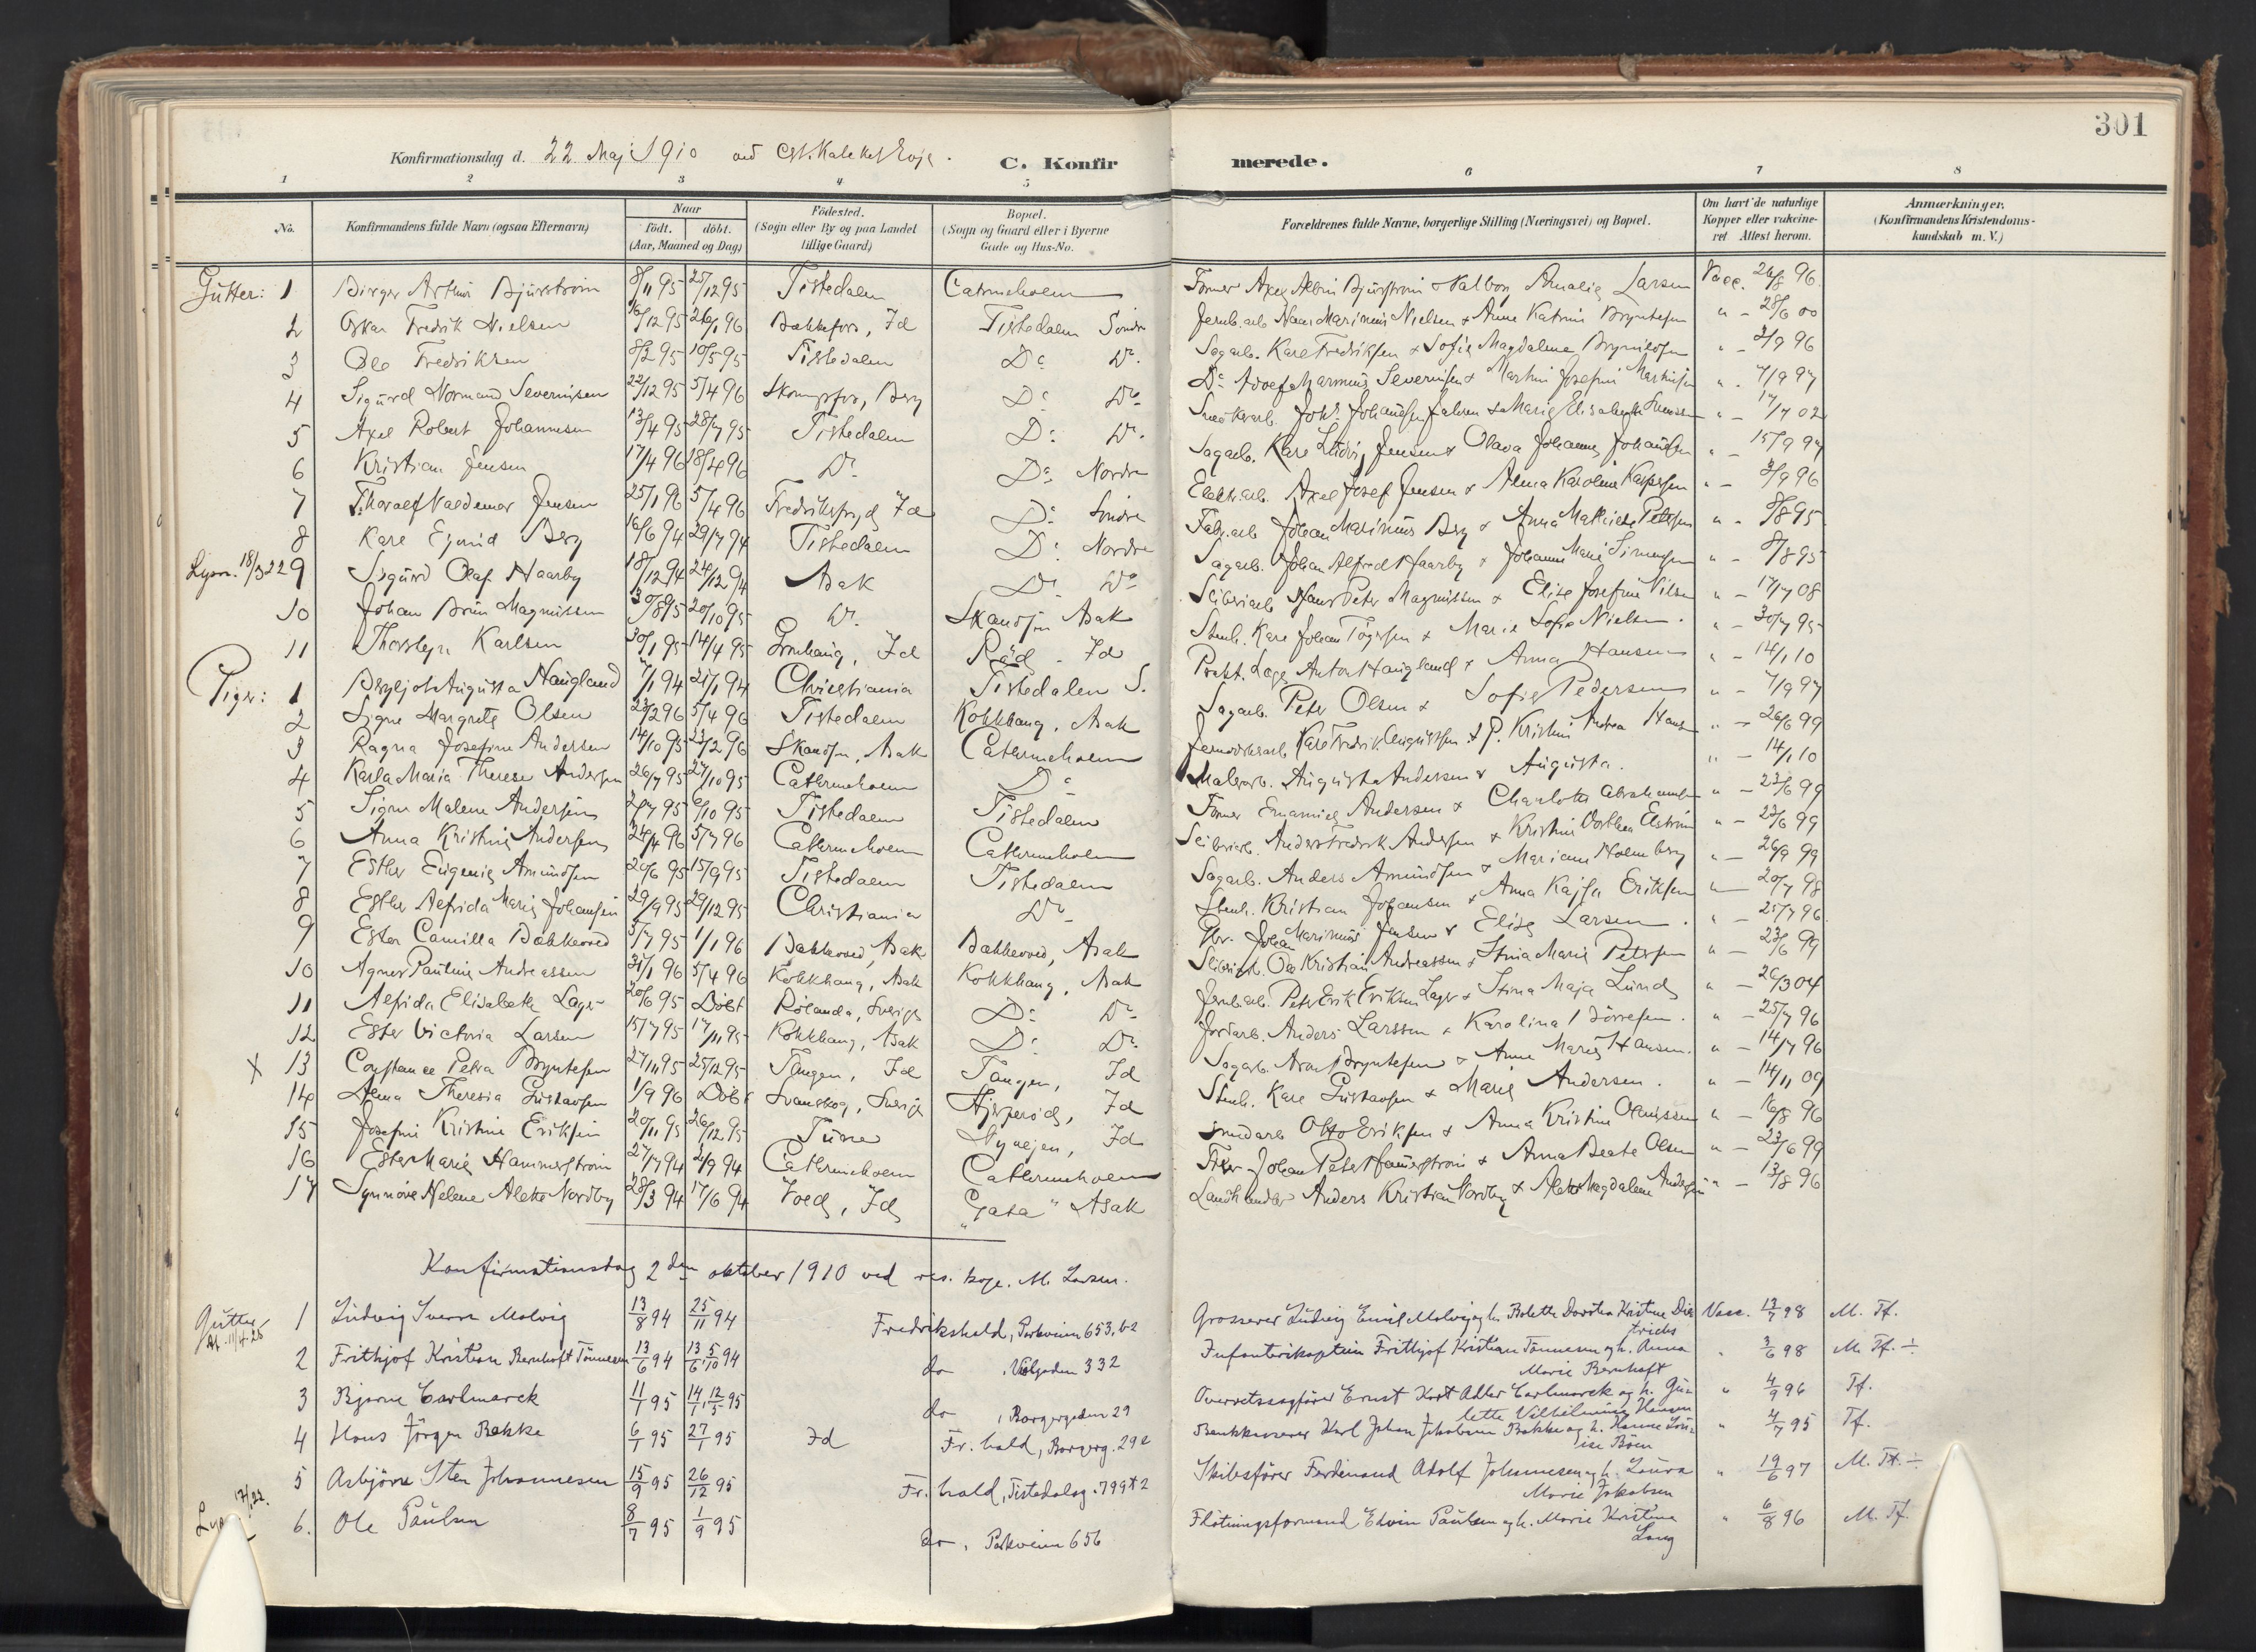 301
Konfirmationsdag d. 22 Maj 1910 ved
C. Konfirmerede.
1 2 3 4 5 6 7 8
No.
Konfirmandens fulde Navn (ogsaa Efternavn)
Naar
födt. döbt.
(Aar, Maaned og Dag)
Födested.
(Sogn eller By og paa Landet
tillige Gaard)
Bopæl.
(Sogn og Gaard eller i Byerne
Gade og Hus-No.
Forældrenes fulde Navne, borgerlige Stilling (Næringsvei) og Bopæl.
Om havt de naturlige
Kopper eller vakcine-
ret Attest herom.
Anmærkninger.
(Konfirmandens Kristendoms-
kundskab m. V.)
Gutter: 1 Birger Arthur Bjurström 8/11 95 25/12 95 Tistedalen Catrineholm Former Axel Albin Bjurström & Valborg Amalie Larsen Vacc. 26/8 96
2 Oskar Fredrik Nielsen 16/12 95 26/1 96 Bakkefoss, Id Tistedalen Söndre Jernb.arb. Hans Marinius Nielsen & Anne Katrine Bryntesen " - 28/6 00
3 Ole Fredriksen 8/2 95 10/5 95 Tistedalen Do Do. Sagarb. Karl Fredriksen & Sofie Magdalene Brynildsen " - 3/9 96
4 Sigurd Normand Severinsen 22/12 95 5/4 96 Skonningsfos, Berg Do Do Do Adolf Marinius Severinsen & Martine Josefine Martinsen " - 7/9 97
5 Axel Robert Johannesen 13/4 95 28/7 95 Tistedalen Do Do. Johs. Johannesen & Marie Elisabeth Svensen " - 17/7 02
6 Kristian Jensen 17/4 96 18/4 96 Do Do Nordre Sagarb. Karl Ludvig Jensen & Olava Johanne Johansen " - 15/9 97
7 Thoralf Valdemar Jensen 25/1 96 5/4 96 Fredriksfryd, Id Do Söndre Elektr.arb. Axel Josef Jensen & Alma Karoline Kaspersen " - 3/9 96
8 Karl Ejvind Berg 16/6 94 29/7 94 Tistedalen Do Nordre Fabr.arb. Johan Marinius Berg & Anna Mathilde Pettersen " - 8/8 95
Lysn. 18/3 22 9 Sigurd Olaf Haarby 18/12 94 24/12 94 Asak Do Do Sagarb. Johan Alfred Haarby & Johanne Marie Simensen " - 8/8 95
10 Johan Brün Magnussen 30/8 95 20/10 95 Do. Skandsen Asak Sliberiarb. Hans Peter Magnussen & Elise Josefine Nilsen " - 17/7 08
11 Thorbjørn Karlsen 30/1 95 14/4 95 Grønhaug, Id Röd - Id Stenh. Karl Johan Tögersen & Marie Sofie Nielsen. " - 30/7 95
Piger: 1 Bergljot Augusta Haugland 7/1 94 21/1 94 Christiania Tistedalen S. Prakt. Læge Anton Haugland & Anna Hansen " - 14/1 10
2 Signe Margrete Olsen 23/2 96 5/4 96 Tistedalen Kokkhaug, Asak Sagarb. Peter Olsen & Sofie Pedersen " - 7/9 97
3 Ragna Josefine Andersen 14/10 95 23/2 96 Skandsen, Asak Catherineholm Karl Fredrik Augustsen & P. Kristine Andrea Hans " - 26/6 99
4 Karla Maria Therese Andersen 26/7 95 27/10 95 Catherineholm Do Malerarb. Augusta Andersen & Augusta. " - 14/1 10
5 Signe Malene Andersen 2/7 95 6/10 95 Tistedalen Tistedalen Former Emanuel Andersen & Charlotte Abrahamsen " - 23/6 99
6 Anna Kristine Andersen 24/4 96 5/7 96 Catherineholm Catherineholm Sliberiarb. Anders Fredrik Andersen & Kristine Dorthea Elström " - 23/6 99
7 Esther Eugenie Amundsen 20/6 95 15/9 95 Tistedalen Tistedalen Sagarb. Anders Amundsen & Mariane Holmberg " - 26/9 99
8 Esther Alfrida Marie Johansen 29/9 95 29/12 95 Christiania Do Stenh. Kristian Johansen & Anna Kajsa Eriksen " - 20/7 98
9 Ester Camilla Bakkerød 5/7 95 1/1 96 Bakkerød, Asak Bakkerød, Asak Gbr. Johan Marinius Jensen & Elise Larsen. " - 25/7 96
10 Agnes Pauline Andreassen 31/1 96 5/4 96 Kokkhaug, Asak Kokkhaug, Asak Sliberiarb. Ole Kristian Andreassen & Stina Marie Petersen " - 23/6 99
11 Alfrida Elisabeth Lager 20/6 95 Döbt Rölanda, Sverige Do Do Jernb.arb. Peter Erik Eriksen Lager & Stina Maja Lund " - 26/3 04
12 Ester Victoria Larsen 15/7 95 17/11 95 Kokkhaug, Asak Do Do Jordarb. Anders Larssen & Karolina Börresen. " - 25/7 96
X 13 Constance Petra Bryntesen 27/11 95 25/12 95 Tangen, Id Tangen, Id Sagarb. Bryntesen & Anne Marie Hansen. " - 14/7 96
14 Alma Theresia Gustavsen 1/9 96 Döbt Svanskog, Sverige Hjerperöd, Id Stenh. Karl Gustavsen & Marie Andersen. " - 14/11 09
15 Josefine Kristine Eriksen 20/11 95 26/12 95 Tune Id Otto Eriksen & Anna Kristine Olaussen " - 16/8 96
16 Ester Marie Hammerström 27/7 94 2/9 94 Catherineholm Catherineholm Johan Peter Hamerström & Anna Beate Olsen " - 23/6 99
17 Synnöve Helene Alette Nordby 28/3 94 17/6 94 Id "Gata" Asak Landhandler Anders Kristian Nordby & Alette Magdalene Andersen " - 13/8 96
Konfirmationsdag 2den oktober 1910 ved res. kap. M. Larsen.
Gutter 1 Ludvig Sverre Molvig 13/8 94 25/11 94 Fredrikshald, Parkveien 653, b2 Grosserer Ludvig Emil Molvig og h. Bolette Dorothea Kristine Die Vacc. 13/7 98 M. Tf.
At. 11/4-28
trichs
2 Frithjof Kristian Bernhoft Tönnesen 13/6 94 13/6, 5/10 94 do , Volgaden 332 Infanterikaptein Frithjof Kristian Tönnesen og h. Anna " 3/6 98 M. Tf. ÷
Marie Bernhoft
3 Bjarne Carlmarck 11/1 95 14/1, 12/5 95 do , Borgergaden 29 Overretssagförer Ernst Kort Adler Carlmarck og h. Gu- " 4/9 96 Tf.
lette Vilhelmine Hansen
4 Hans Jörgen Bakke 6/1 95 27/1 95 Id Fr.hald, Borgerg. 292 Bankkasserer Karl Johan Jakobsen Bakke og h. Hanne Lou- " 4/7 95 Tf.
ise Böen
5 Asbjörn Sten Johannesen 15/9 95 26/12 95 Fr.hald, Tistedalsg. 799 + 2 Skibsförer Ferdinand Adolf Johannesen og h. Laura " 19/6 97 M. Tf. ÷
Marie Jakobsen
17/1 22.
6. Ole Paulsen 8/7 95 1/9 95 do, Parkveien 656 Flötningsformand Edvin Paulsen og h. Marie Kristine " 6/8 96 M. Tf.
Lang